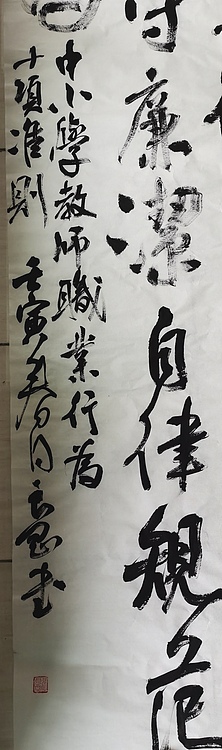 守廉潔自律規范
中小學教師職業行為
十項准則 壬寅春月 書